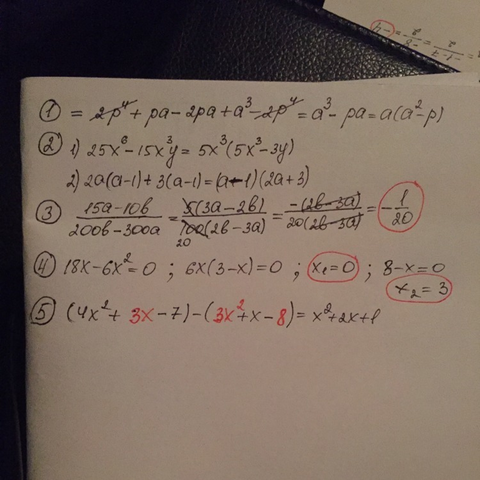 -4
-8/2 = -1-7/2 =
① = 2p⁴ + pa - 2pa + a³ - 2p⁴ = a³ - pa = a(a² - p)
② 1) 25x⁶ - 15x³y = 5x³(5x³ - 3y)
2) 2a(a-1) + 3(a-1) = (a-1)(2a+3)
③ 15a-10b/200b-300a = 5(3a-2b)/100(2b-3a) 20 = -(2b-3a)/20(2b-3a) = -1/20
④ 18x - 6x² = 0 ; 6x(3-x) = 0 ; x₁ = 0 ; 8-x = 0
x₂ = 3
⑤ (4x² + 3x - 7) - (3x² + x - 8) = x² + 2x + 1